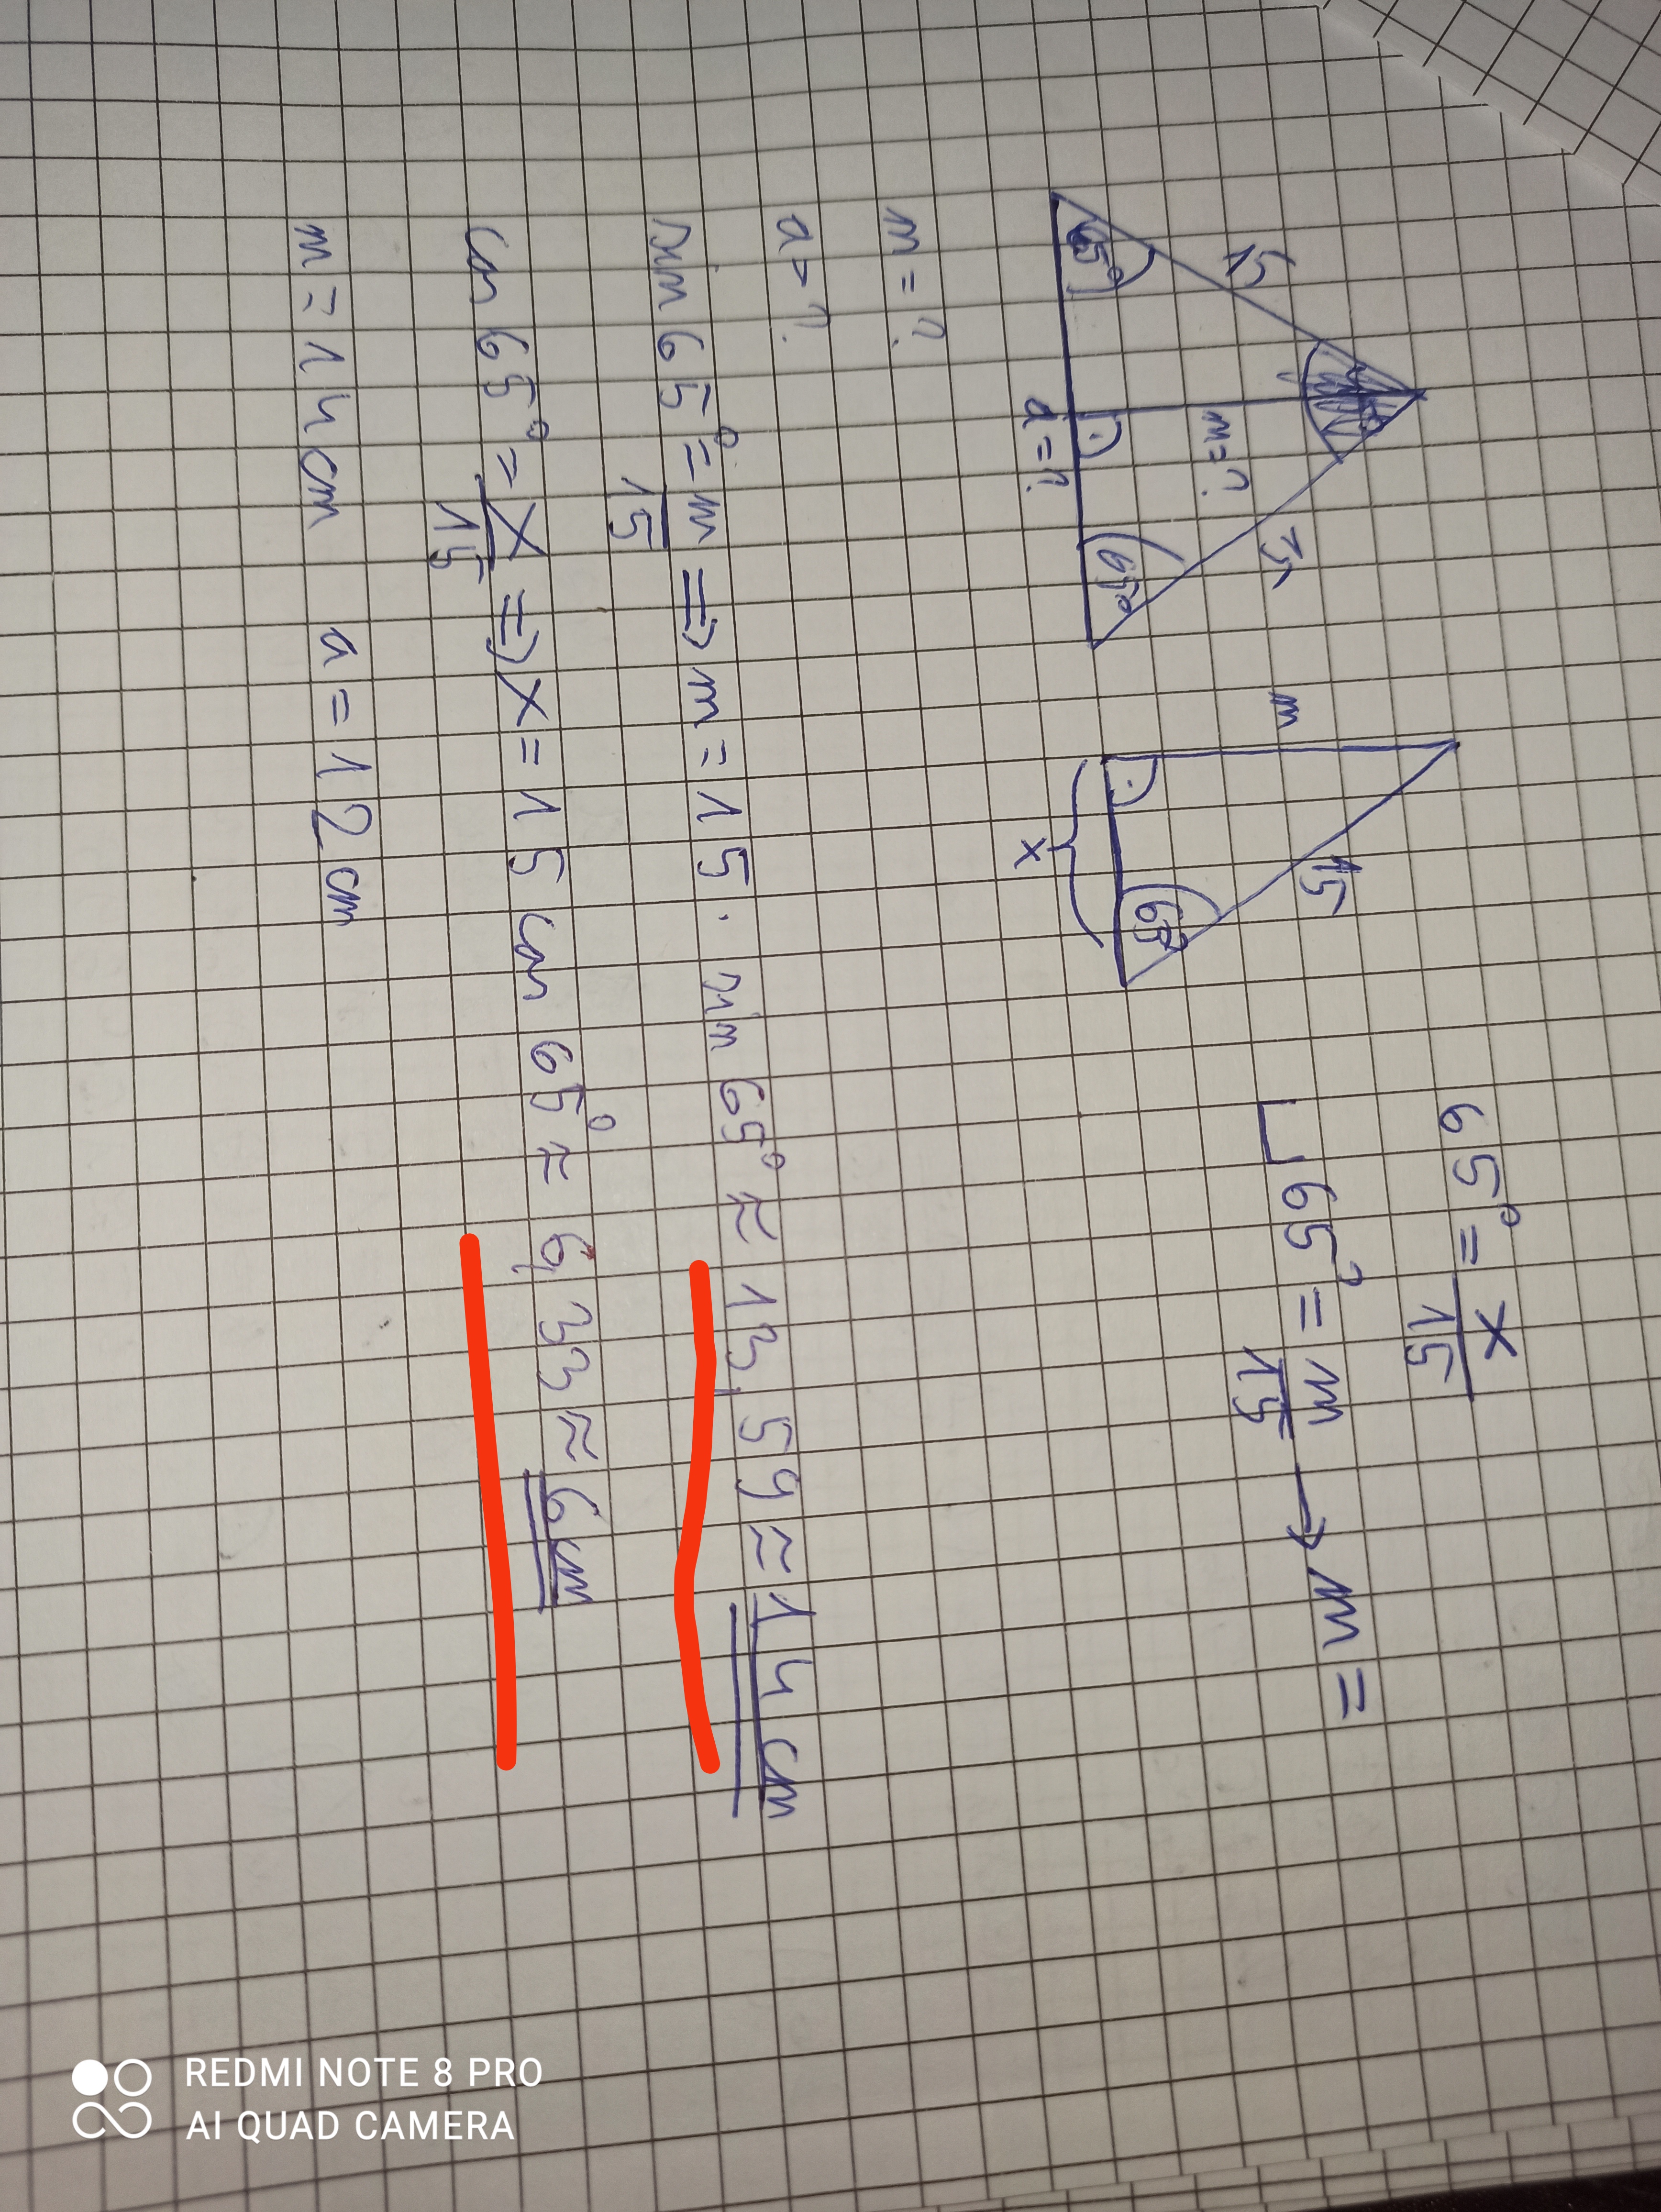 15
15
m=?
65°
65°
a=?
m
15
65°
x
65° = x/15
65° = m/15 → m =
m = ?
a = ?
sin 65° = m/15 ⇒ m = 15 · sin 65° ≈ 13,59 ≈ 14 cm
cos 65° = x/15 ⇒ x = 15 cos 65° ≈ 6,33 ≈ 6 cm
m = 14 cm a = 12 cm
REDMI NOTE 8 PRO
AI QUAD CAMERA